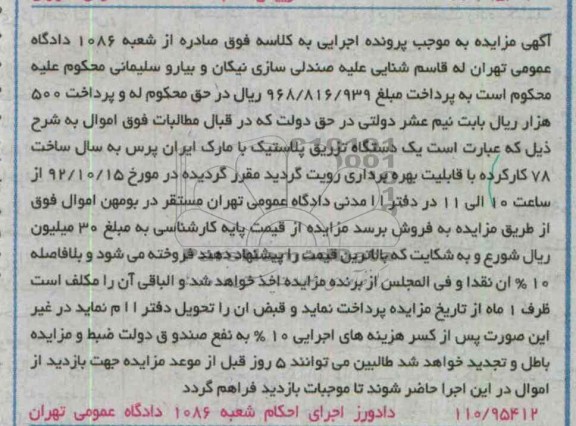 آگهی مزایده به موجب پرونده اجرایی به کلاسه فوق صادره از شعبه ۱۰۸۶ دادگاه
عمومی تهران له قاسم شنایی علیه صندلی سازی نیکان و بیارو سلیمانی محکوم علیه
محکوم است به پرداخت مبلغ ۹۶۸/۸۱۶/۹۳۹ ریال در حق محکوم له و پرداخت ۵۰۰
هزار ریال بابت نیم عشر دولتی در حق دولت که در قبال مطالبات فوق اموال به شرح
ذیل که عبارت است یک دستگاه تزریق پلاستیک با مارک ایران پرس به سال ساخت
۷۸ کارکرده با قابلیت بهره برداری رویت گردید مقرر گردیده در مورخ ۹۲/۱۰/۱۵ از
ساعت ۱۰ الی ۱۱ در دفتر ا ا مدنی دادگاه عمومی تهران مستقر در بومهن اموال فوق
از طریق مزایده به فروش برسد مزایده از قیمت پایه کارشناسی به مبلغ ۳۰ میلیون
ریال شورع و به شکایت که بالاترین قیمت را پیشنهاد دهند فروخته می شود و بلافاصله
۱۰ % ان نقدا و فی المجلس از برنده مزایده اخذ خواهد شد و الباقی آن را مکلف است
ظرف ۱ ماه از تاریخ مزایده پرداخت نماید و قبض ان را تحویل دفتر ا ا م نماید در غیر
این صورت پس از کسر هزینه های اجرایی ۱۰ % به نفع صندو ق دولت ضبط و مزایده
باطل و تجدید خواهد شد طالبین می توانند ۵ روز قبل از موعد مزایده جهت بازدید از
اموال در این اجرا حاضر شوند تا موجبات بازدید فراهم گردد
۱۱۰/۹۵۴۱۲ دادورز اجرای احکام شعبه ۱۰۸۶ دادگاه عمومی تهران